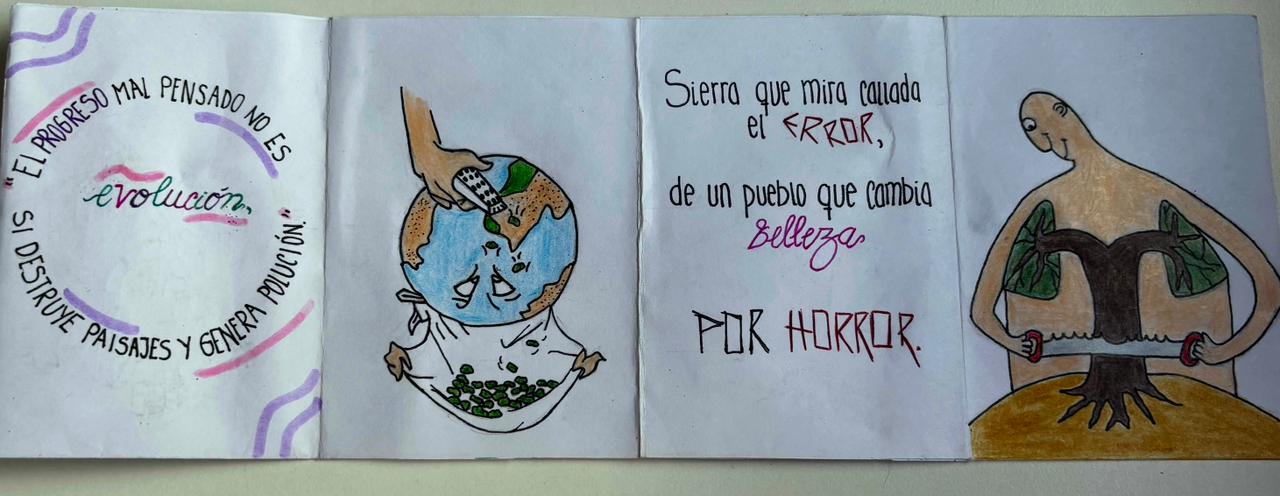 "EL PROGRESO MAL PENSADO NO ES
evolución,
SI DESTRUYE PAISAJES Y GENERA POLUCIÓN."
Sierra que mira callada
el ERROR,
de un pueblo que cambia
Belleza
POR HORROR.